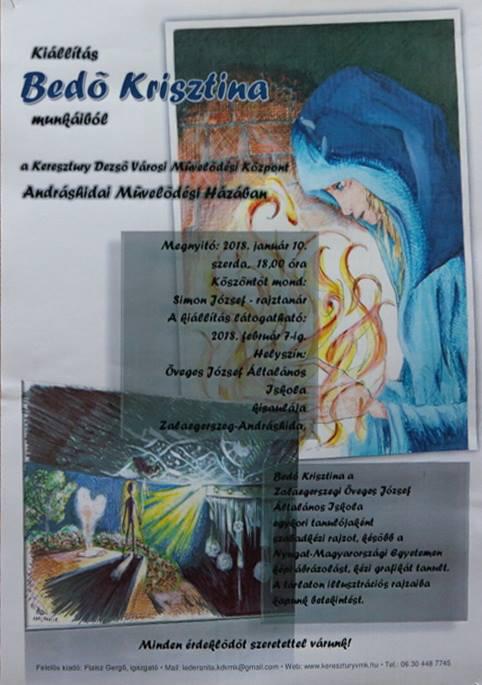 Kiállítás
Bedő Krisztina
munkáiból
a Keresztury Dezső Városi Művelődési Központ
Andráshidai Művelődési Házában
Megnyitó: 2018. január 10.
szerda, 18,00 óra
Köszöntőt mond:
Simon József - rajztanár
A kiállítás látogatható:
2018. február 7-ig.
Helyszín:
Öveges József Általános
Iskola
kisaulája
Zalaegerszeg-Andráshida,
Bedő Krisztina a
Zalaegerszegi Öveges József
Általános Iskola
egykori tanulójaként
szabadkézi rajzot, később a
Nyugat-Magyarországi Egyetemen
képi ábrázolást, kézi grafikát tanult.
A tárlaton illusztrációs rajzaiba
kapunk betekintést.
Minden érdeklődőt szeretettel várunk!
Felelős kiadó: Flaisz Gergő, igazgató • Mail: lederanita.kdvmk@gmail.com • Web: www.kereszturyvmk.hu • Tel.: 06 30 448 7745